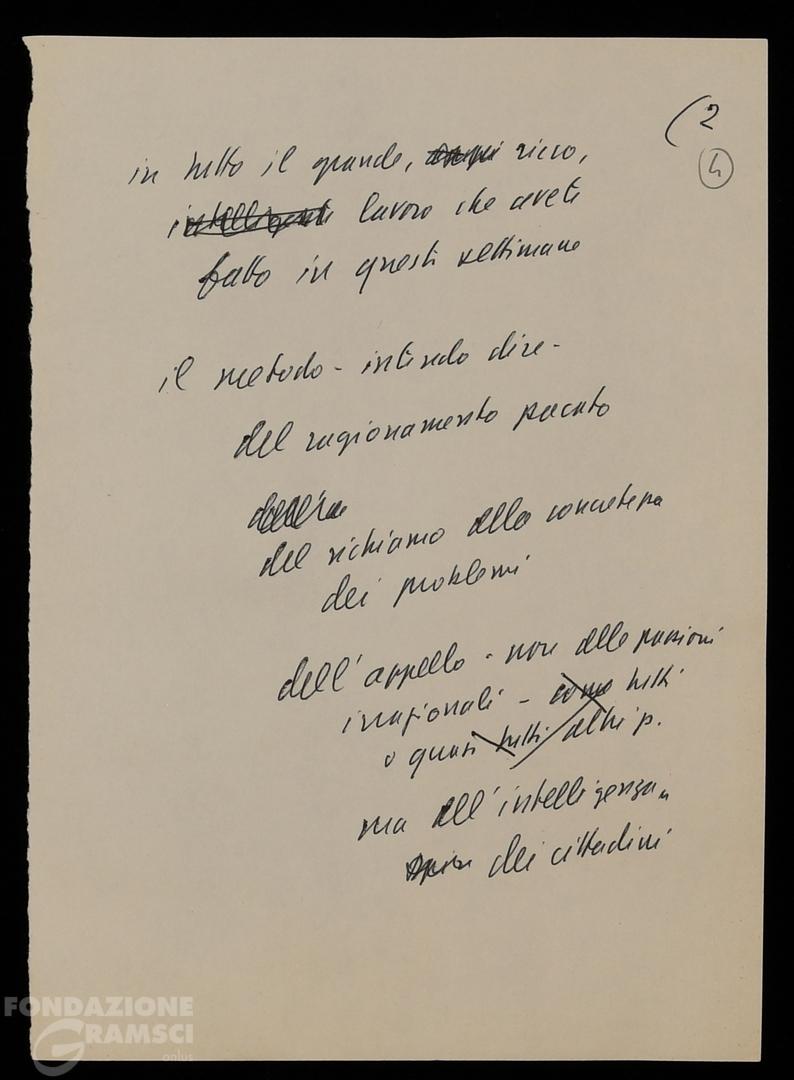 (2
4
in tutto il grande, ricco,
intelligente lavoro che avete
fatto in questi settimane
il metodo - intendo dire -
del ragionamento pacato
del richiamo alla concretezza
dei problemi
dell'appello - non alle passioni
irrazionali - come tutti
o quasi tutti altri p.
ma all'intelligenza
dei cittadini
FONDAZIONE
GRAMSCI
onlus